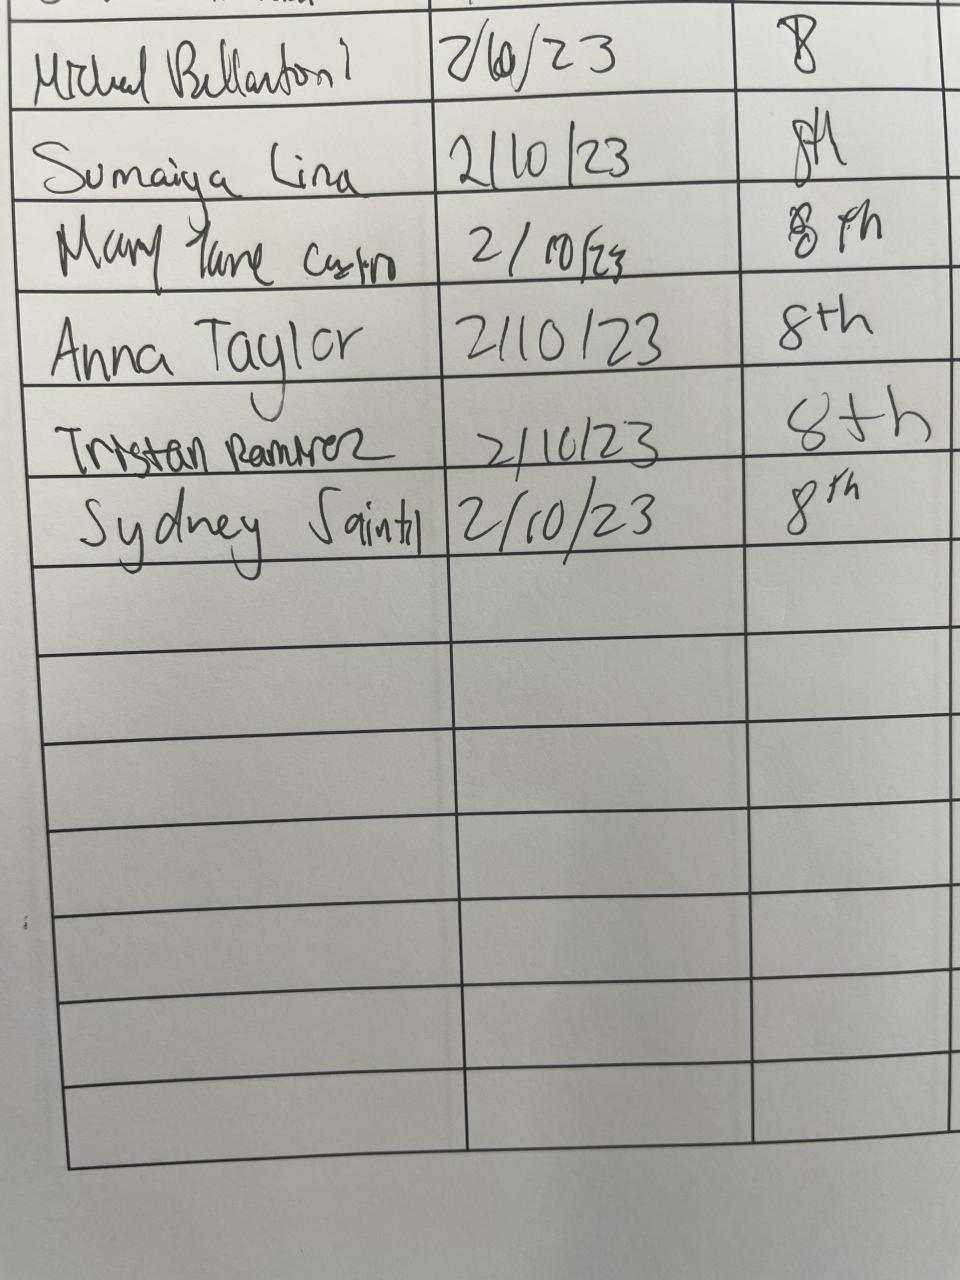 Michael Bellantoni 2/10/23 8
Sumaiya Lina 2/10/23 8th
Mary Jane Castro 2/10/23 8th
Anna Taylor 2/10/23 8th
Tristan Ramirez 2/10/23 8th
Sydney Saintil 2/10/23 8th